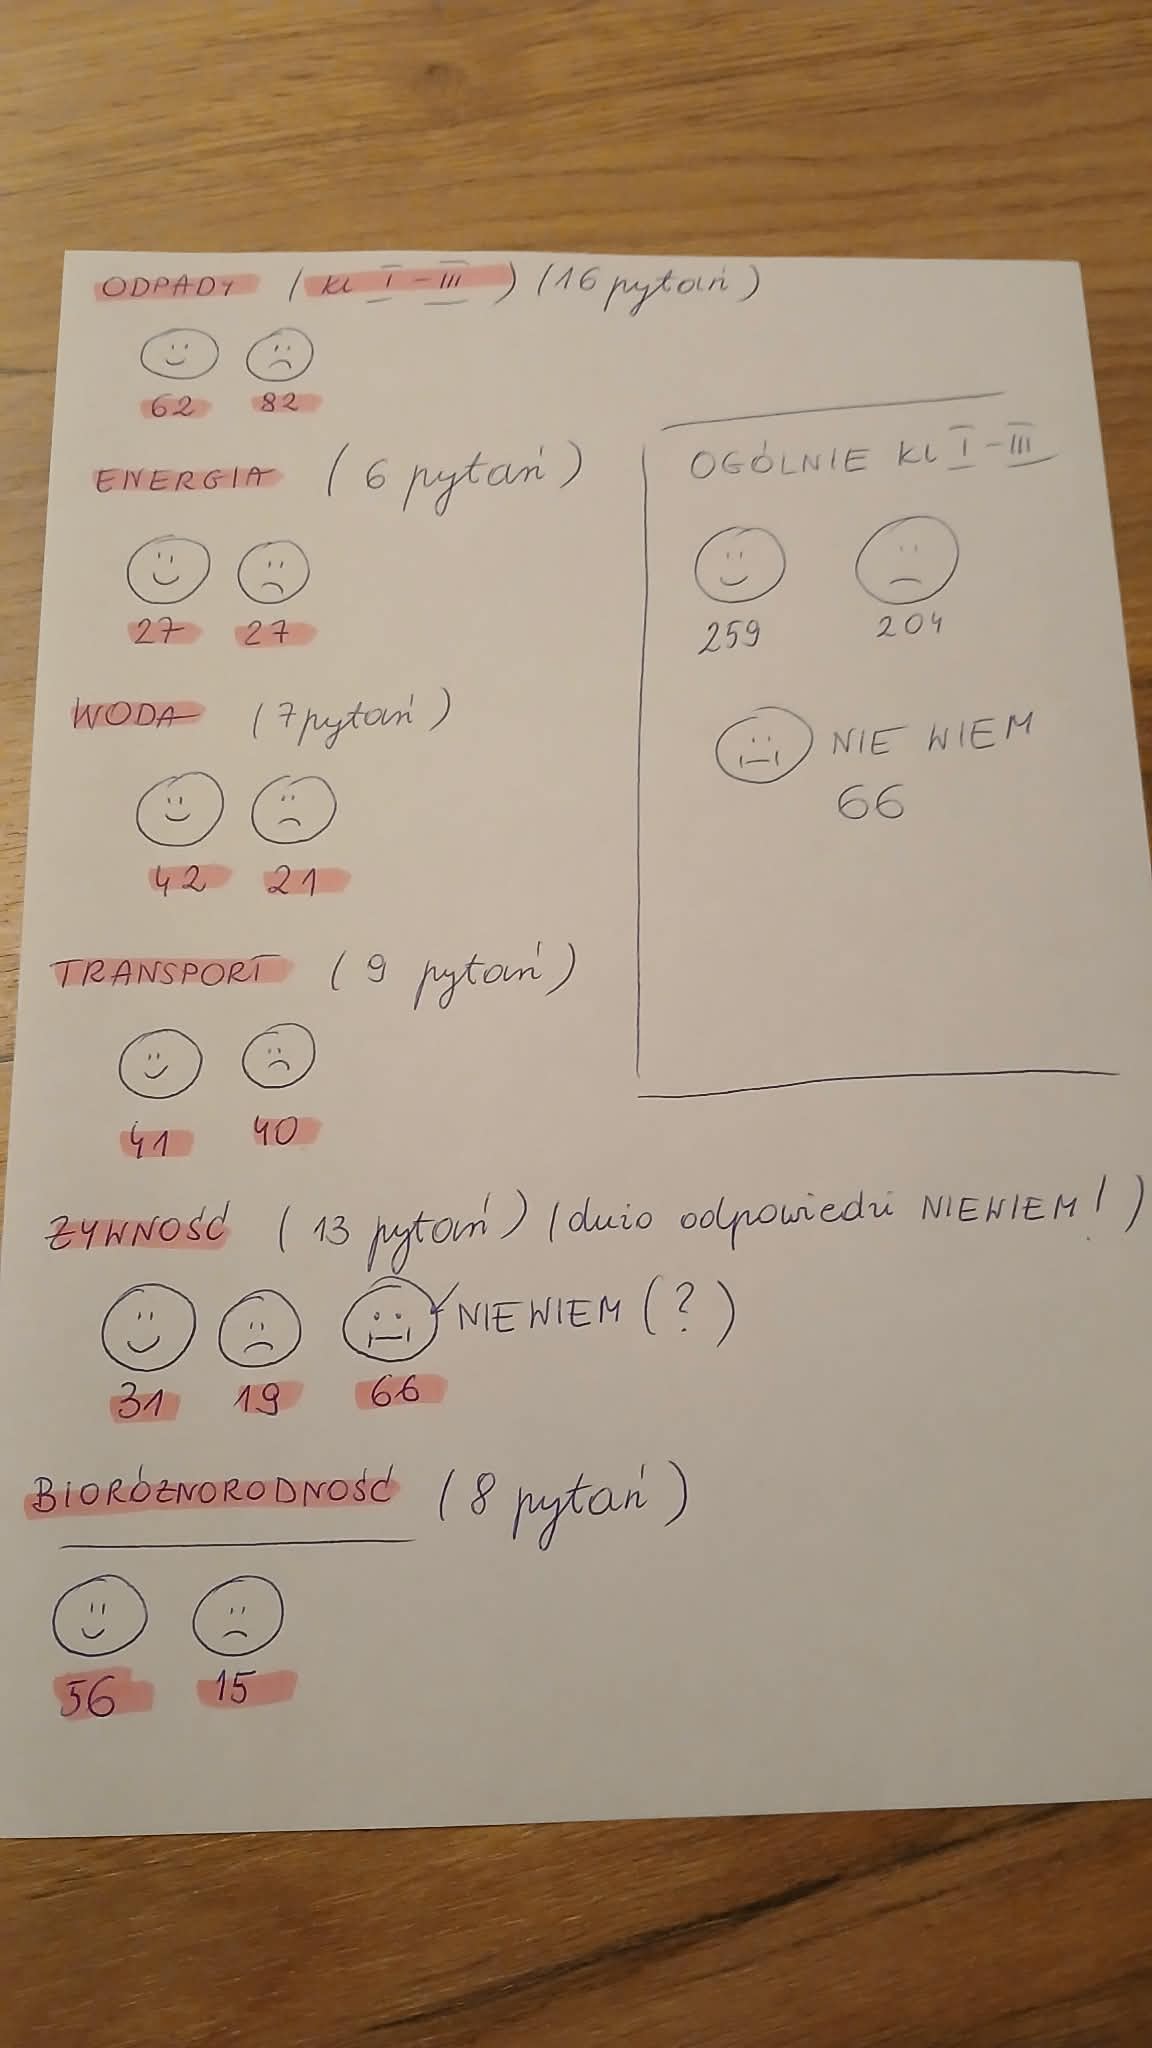 ODPADY (KL I-III) (16 pytań)
62 82
ENERGIA (6 pytań)
27 27
WODA (7 pytań)
42 21
TRANSPORT (9 pytań)
41 40
ŻYWNOŚĆ (13 pytań) (dużo odpowiedzi NIEWIEM!)
NIEWIEM (?)
31 19 66
BIORÓŻNORODNOŚĆ (8 pytań)
56 15
OGÓLNIE KL I-III
259 204
NIE WIEM
66